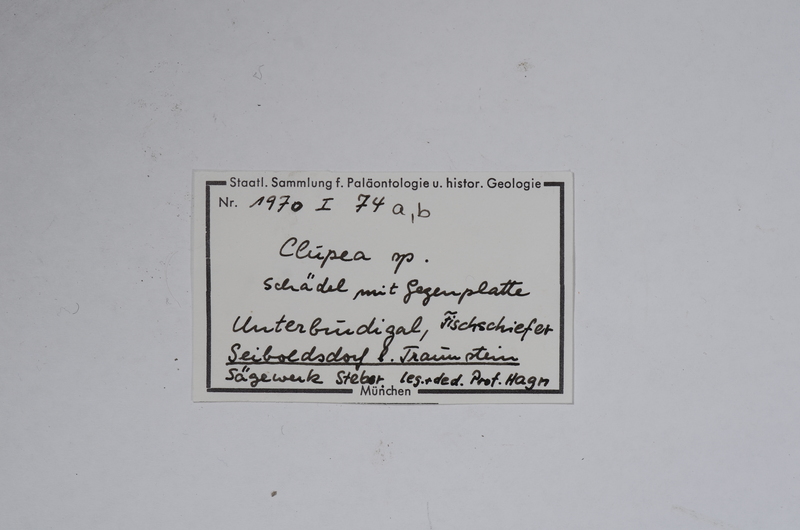 Staatl. Sammlung f. Paläontologie u. histor. Geologie
Nr. 1970 I 74 a,b
Clupea sp.
Schädel mit Gegenplatte
Unterbündigal, Fischschiefer
Seiboldsdorf b. Traunstein
Sägewerk Steber, leg. + ded. Prof. Hagn
München